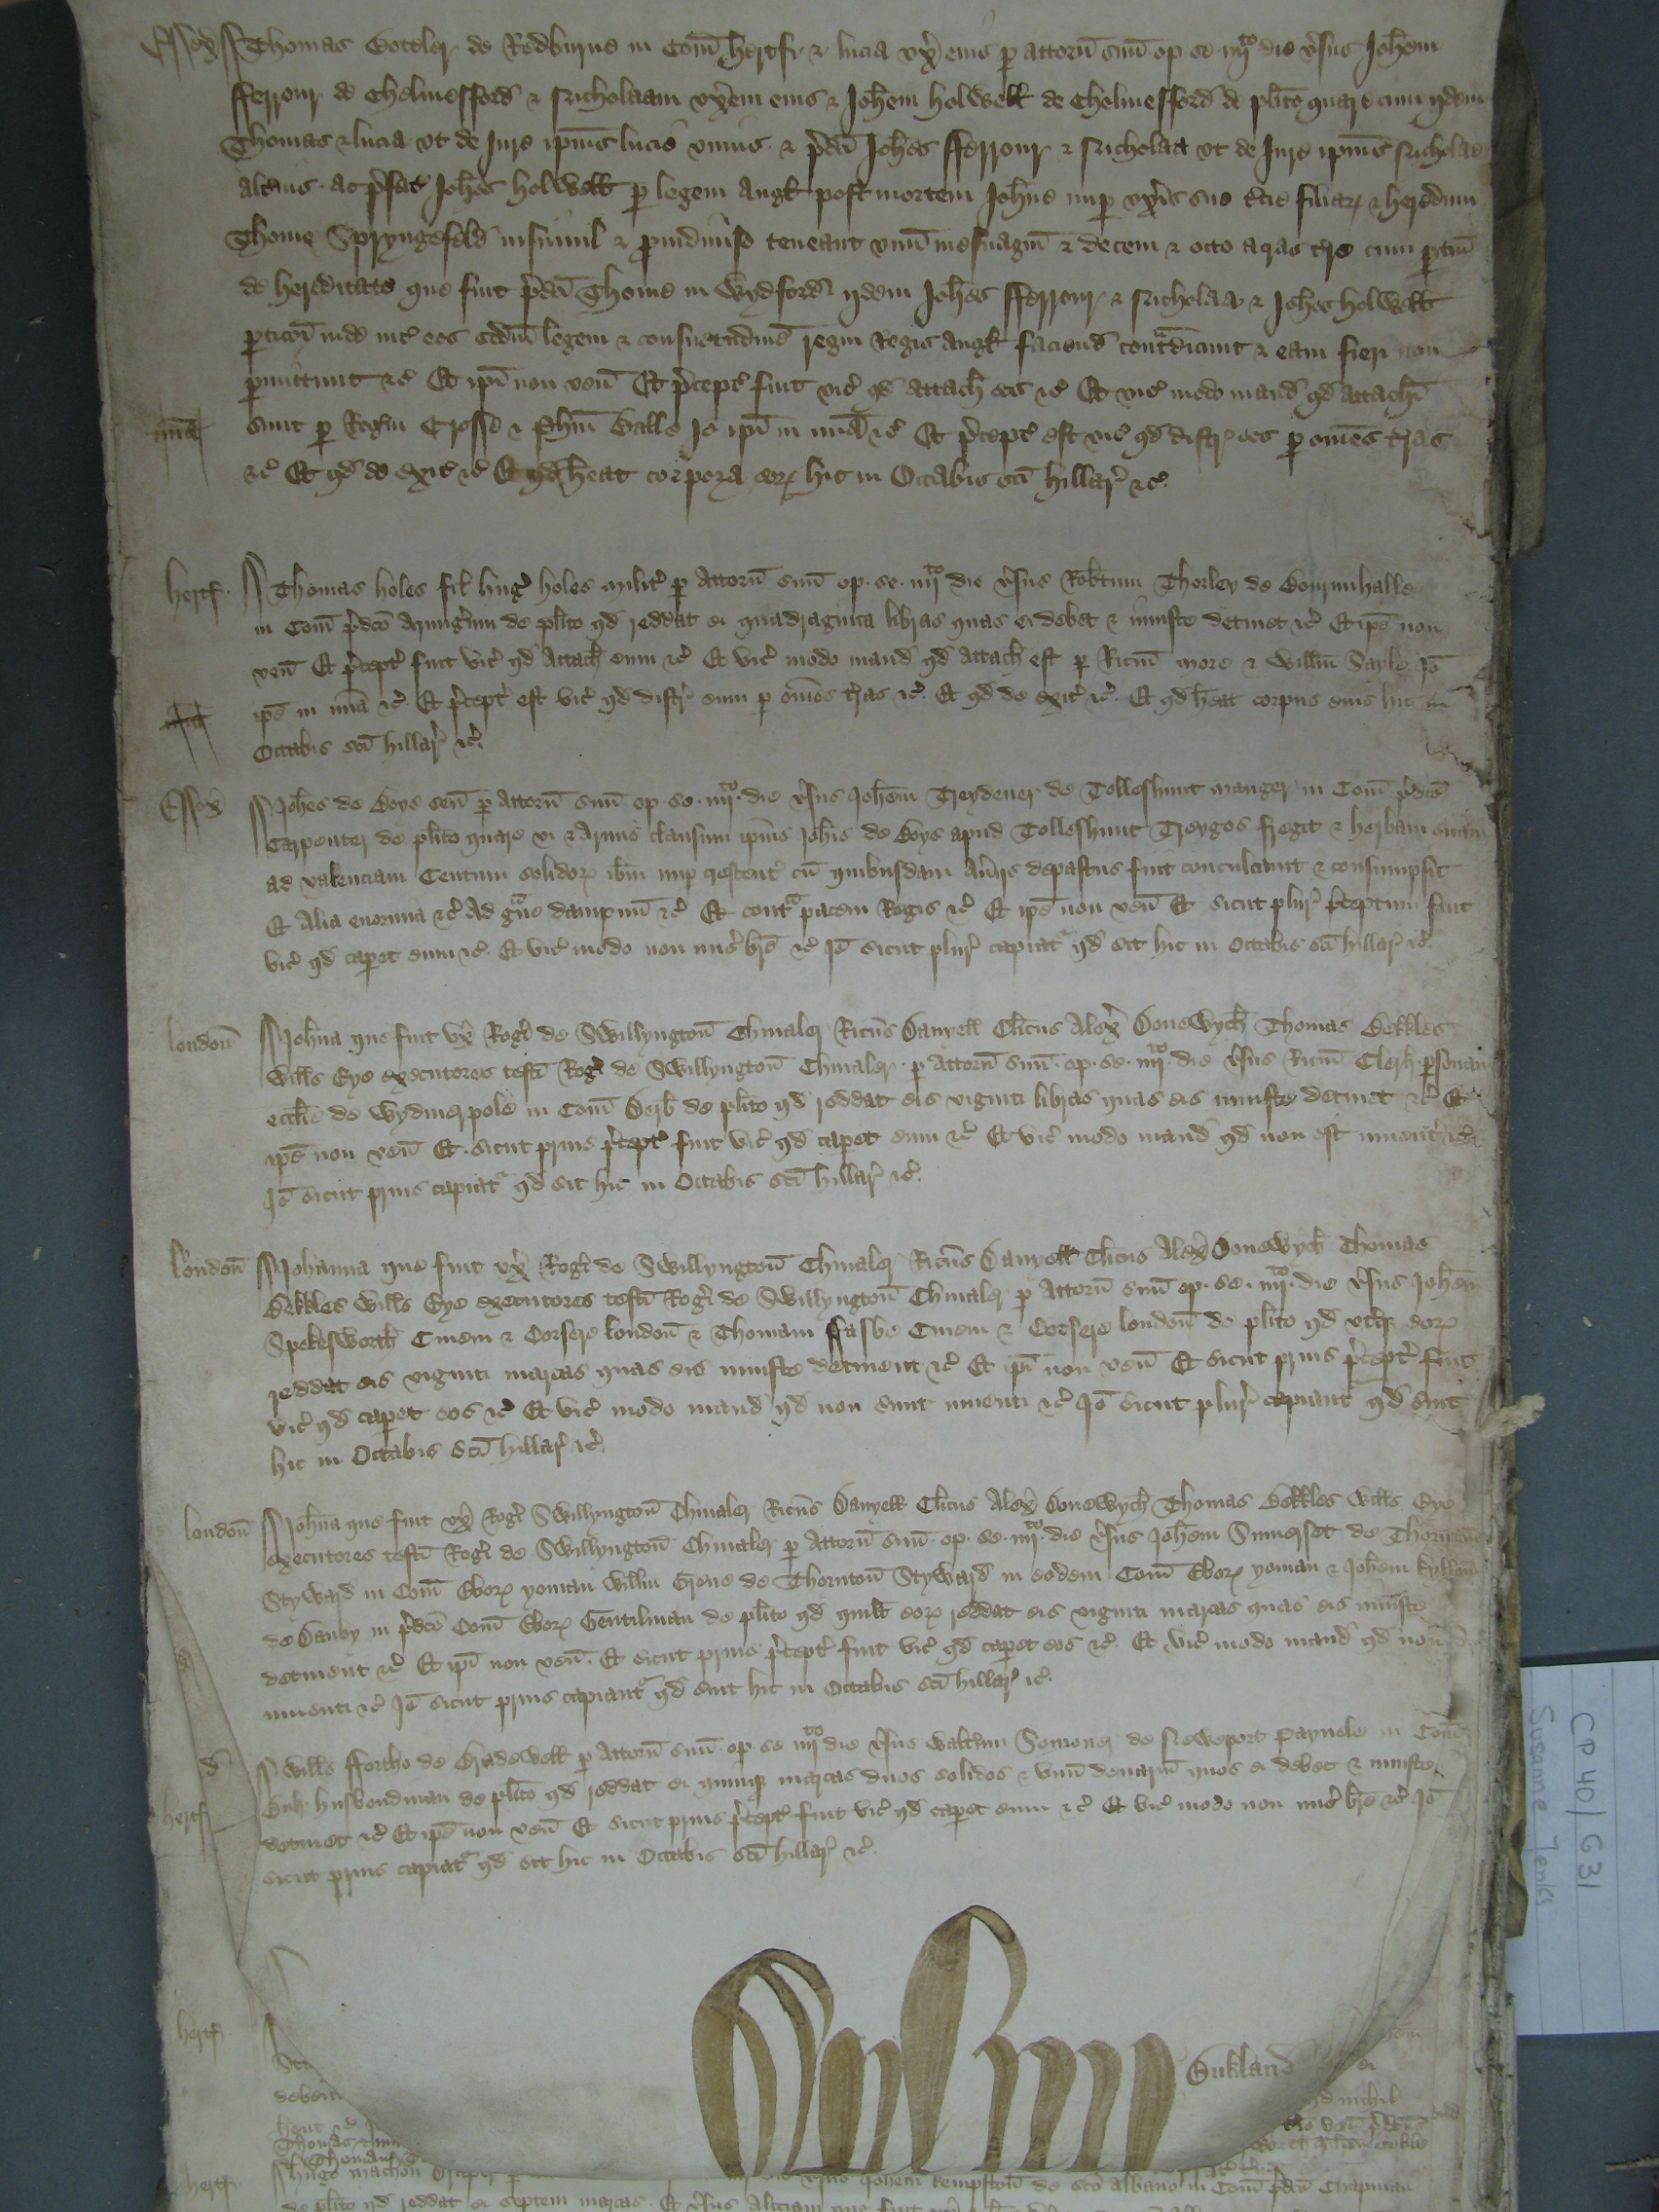 Essex Thomas Botteler de Redburne in Com̄ Hertf' & Lucia ux̄ eius p attorn̄ suū op. se iiijto die v̄sus Joh̄em
fferrour de Chelmesford & Nicholaam ux̄em eius & Joh̄em Holwell de Chelmesfford de pl̄ito quare cum ijdem
Thomas & Lucia ut de Jure ip̄ius Lucie unius & p̄dc̄i Joh̄es fferrour & Nicholaa ut de Jure ip̄ius Nicholae
alt̄ius ac p̄fat' Joh̄es Holwell p legem Angl' post mortem Joh̄ne nup ux̄is sue t̄cie filiar̄ & heredum
Thome Spryngefeld insimul & p indiviso teneant unū mesuagiū & decem & octo acras t̄re cum ptiñ
de hereditate que fuit p̄dc̄i Thome in Wydford ijdem Joh̄es fferrour & Nicholaa & Joh̄es Holwell
pticōn inde int' eos scdm̄ legem & consuetudinē regni Regis Angl' faciend' cont̄dicunt & eam fieri non
pmittunt &c̄ Et ip̄i non ven̄ Et p̄cept' fuit vic̄ qd attach' eos &c̄ Et vic̄ modo mand' qd attach'
mīa sunt p Rog̃m Crosse & Ph̄m Balle Jō ip̄i in mīa &c̄ Et p̄cept' est vic̄ qd distr' eos p om̄es t̄ras
&c̄ Et qd de exit' &c̄ Et qd h̄eat corpora eor̄ hic in Octabis sc̄i Hillar' &c̄
Hertf' Thomas Holes fil' Hug' Holes milit' p attorn̄ suū op. se. iiijto die v̄sus Rob̄tum Thorley de Bournhalle
in Com̄ p̄dc̄o Armig̃um de pl̄ito qd reddat ei quadraginta libras quas ei debet & iniuste detinet &c̄ Et ip̄e non
ven̄ Et p̄cept' fuit vic̄ qd attach' eum &c̄ Et vic̄ modo mand' qd attach' est p Ric̄m More & Will̄m Sayle Jō
mīa ip̄e in mīa &c̄ Et p̄cept' est vic̄ qd distr' eum p om̄es t̄ras &c̄. Et qd de exit' &c̄. Et qd h̄eat corpus eius hic in
Octabis sc̄i Hillar' &c̄.
Essex Joh̄es de Boys sen̄ p attorn̄ suū op. se. iiijto. die v̄sus Joh̄em Treydener de Tolleshunt Mauger in Com̄ p̄dc̄o
Carpenter de pl̄ito quare vi & armis clausum ip̄ius Joh̄is de Boys apud Tolleshunt Tregos fregit & herbam suam
ad valenciam Centum solidor̄ ib̄m nup crescent' cū quibusdam Av̄iis depastus fuit conculcavit & consumpsit
Et alia enormia &c̄ Ad g̃ve dampnū &c̄ Et cont̃ pacem Regis &c̄ Et ip̄e non ven̄ Et sicut plur' p̄ceptum fuit
vic̄ qd capet eum &c̄. Et vic̄ modo non mis' br̄e &c̄ Jō sicut plur' capiat' qd sit hic in Octabis sc̄i Hillar' &c̄.
London̄ Joh̄na que fuit ux̄ Rog̃i de Swillyngton̄ Chivaler Ric̄us Danyell Cl̄icus Alex̄ Donewych Thomas Bekkles
Will̄s Eye executores test̄i Rog̃i de Swillyngton̄ Chivaler p attorn̄ suū op. se. iiijto. die v̄sus Ric̄m Clerk psonam
eccl̄ie de Wydmerpole in Com̄ Derb' de pl̄ito qd reddat eis viginti libras quas eis iniuste detinet &c̄ Et
ip̄e non ven̄ Et sicut prius p̄cept' fuit vic̄ qd capet eum &c̄ Et vic̄ modo mand' qd non est invent' &c̄
Jō sicut prius capiat' qd sit hic in Octabis sc̄i Hillar' &c̄.
London̄ Johanna que fuit ux̄ Rog̃i de Swillyngton̄ Chivaler Ric̄us Danyell Cl̄icus Alex̄ Donewych Thomas
Bekkles Will̄s Eye executores test̄i Rog̃i de Swillyngton̄ Chivaler p attorn̄ suū op. se. iiijto. die v̄sus Joh̄em
Spekesworth Civem & Corsere London̄ & Thomam ffasbe Civem & Corsere London̄ de pl̄ito qd ut̄q eor̄
reddat eis viginti marcas quas eis iniuste detinent &c̄ Et ip̄i non ven̄ Et sicut prius p̄cept' fuit
vic̄ qd capet eos &c̄ Et vic̄ modo mand' qd non sunt inventi &c̄ Jō sicut plur' capiant' qd sint
hic in Octabis sc̄i Hillar' &c̄.
London̄ Joh̄na que fuit ux̄ Rog̃i Swillyngton̄ Chivaler Ric̄us Danyell Cl̄icus Alex̄ Donewych Thomas Bekkles Will̄s Eye
executores test̄i Rog̃i de Swillyngton̄ Chivaler p attorn̄ suū op. se. iiijto. die v̄sus Joh̄em Sumerset de Thornton̄
Styward in Com̄ Ebor̄ yoman Will̄m Grene de Thornton̄ Styward in eodem Com̄ Ebor̄ yoman & Joh̄em
de Danby in p̄dc̄o Com̄ Ebor̄ Gentilman de pl̄ito qd quil̄t eor̄ reddat eis viginti marcas quas eis iniuste
detinent &c̄ Et ip̄i non ven̄. Et sicut prius p̄cept' fuit vic̄ qd capet eos &c̄. Et vic̄ modo mand' qd non
inventi &c̄ Jō sicut prius capiant' qd sint hic in Octabis sc̄i Hillar' &c̄.
Will̄s ffortho de Bradewell p attorn̄ suū op. se iiijto die v̄sus Walt̄um Somoner de Neweport Paynele in Com̄
Buk' husbondman de pl̄ito qd reddat ei quinq marcas duos solidos & unū denariū quos ei debet & iniuste
Hertf' detinet &c̄ Et ip̄e non ven̄ Et sicut prius p̄cept' fuit vic̄ qd capet eum &c̄ Et vic̄ modo non mis' br̄e &c̄ Jō
sicut prius capiat' qd sit hic in Octabis sc̄i Hillar' &c̄.
Hertf'
Bukland
debent
Thomas
Hertf' Hugo Machon v̄sus Joh̄em Kempston̄ de Sc̄o Albano in Com̄ p̄dc̄o Chapman
de pl̄ito qd reddat ei septem marcas. Et v̄sus Aliciam que fuit
CP 40/631
Susanne Jenks